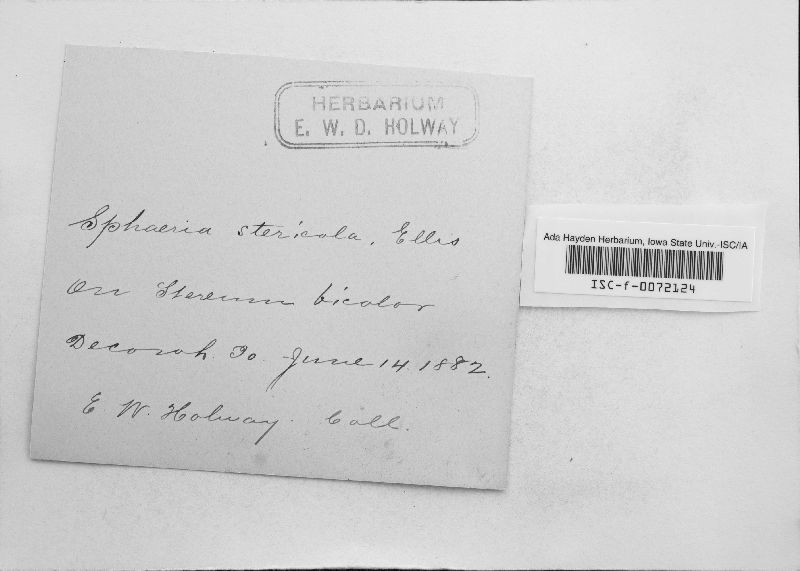 HERBARIUM
E. W. D. HOLWAY
Sphaeria stericola, Ellis
On Stereum bicolor
Decorah. Io. June 14. 1882.
E. W. Holway. Coll.
Ada Hayden Herbarium, Iowa State Univ.-ISC/IA
ISC-f-0072124